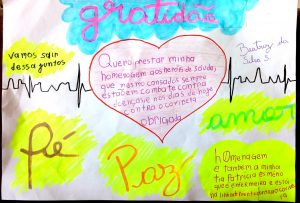 gratidão
vamos sair
dessa juntos
Quero prestar minha
homenagem aos herois da saúde,
que mesmo cansados sempre
estão em combate contra
doenças e nos dias de hoje
contra o corona
obrigada
Beatriz da
Silva S.
Fé
Paz
amor
hOmenagem
e também a minha
tia Patricia
que é enfermeira e está
na linha de frente